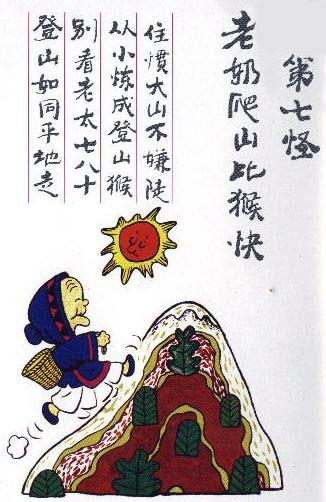 第七怪
老奶爬山比猴快
住慣大山不嫌陡
从小炼成登山猴
别看老太七八十
登山如同平地走